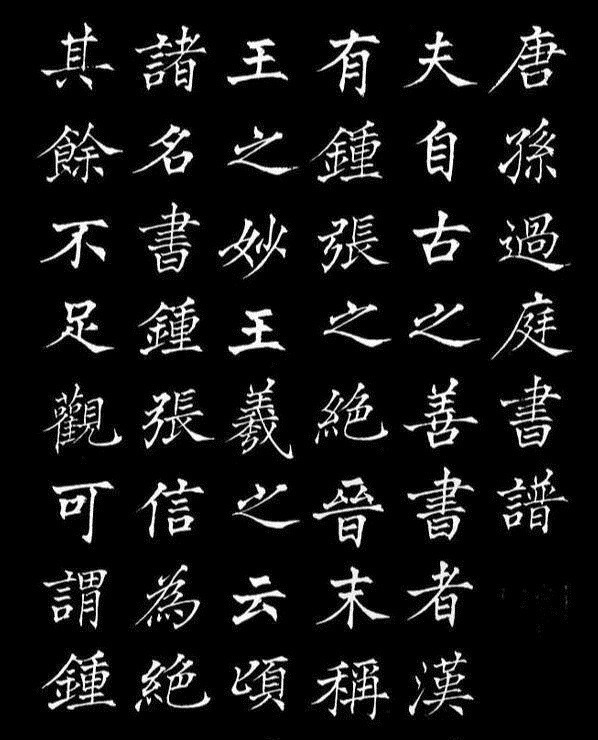 唐孫過庭書譜
夫自古之善書者漢
有鍾張之絕晉末稱
王之妙王羲之云頃
諸名書鍾張信為絕
其餘不足觀可謂鍾